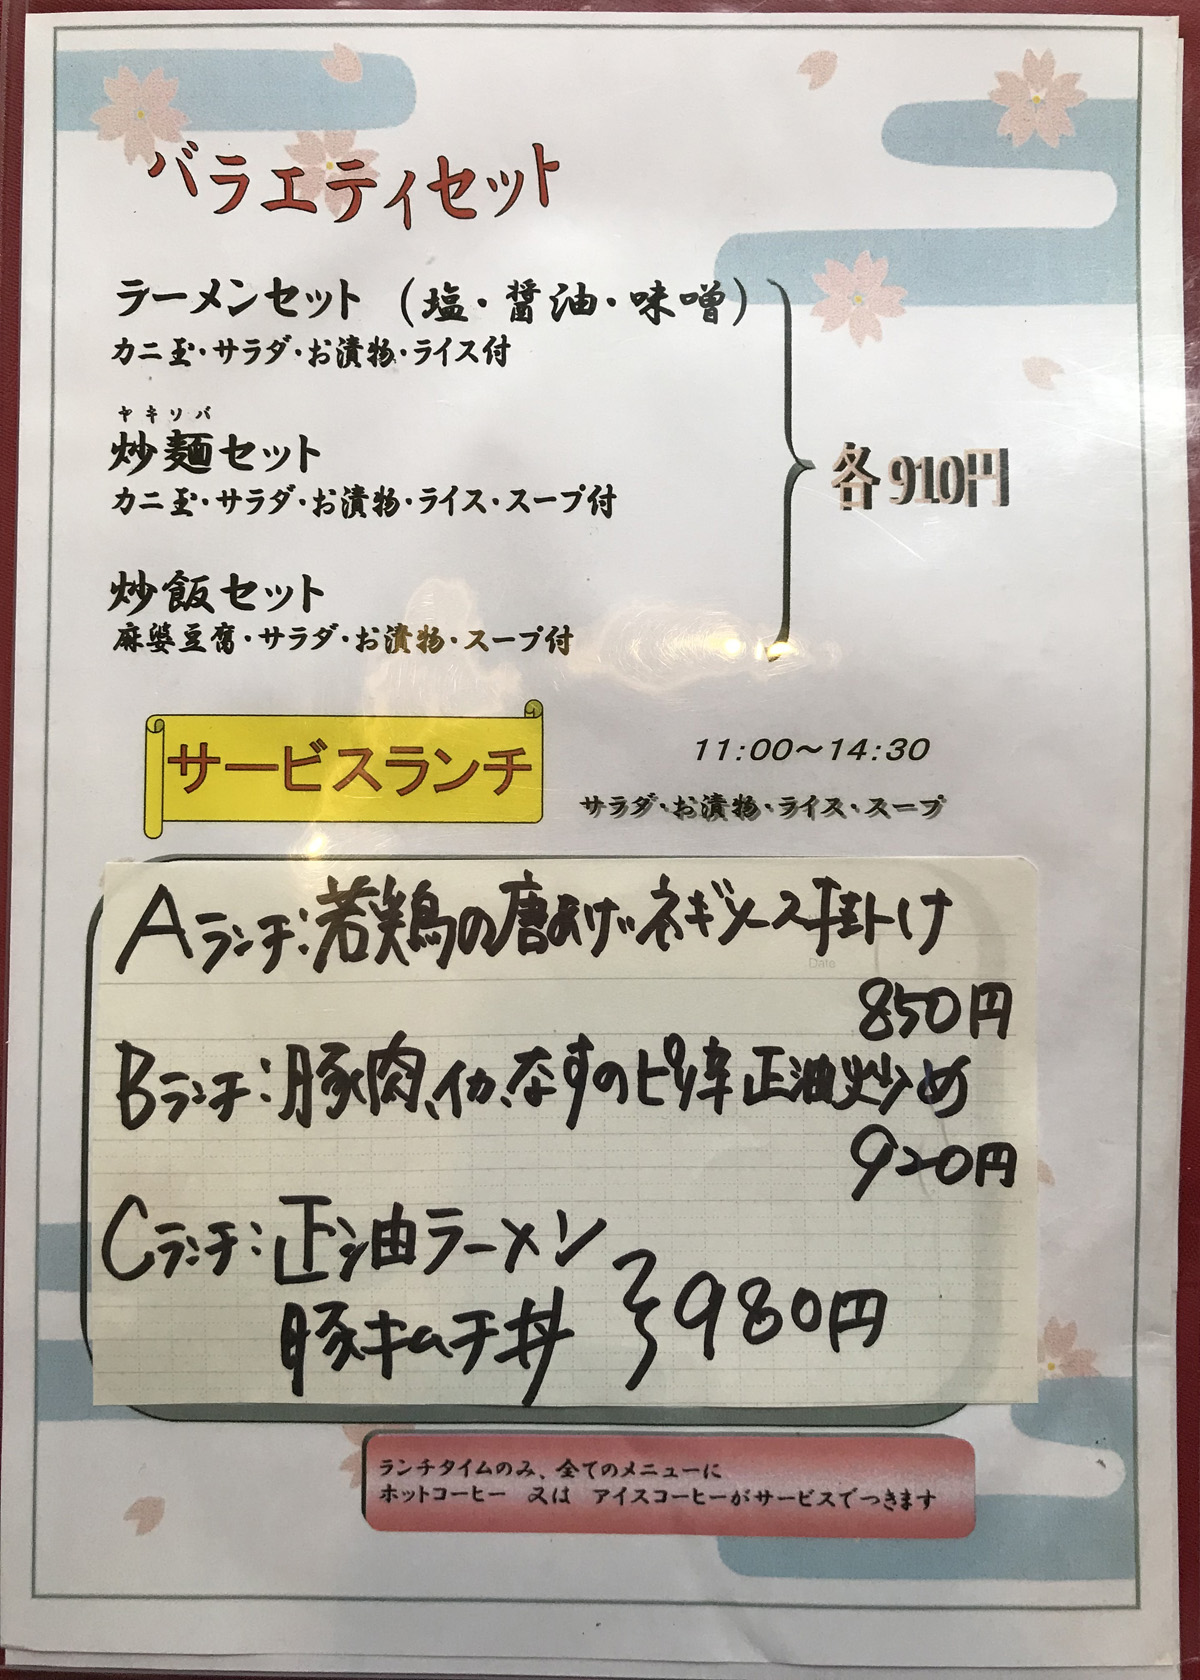 バラエティセット
ラーメンセット （塩・醤油・味噌）
カニ玉・サラダ・お漬物・ライス付
ヤキソバ
炒麺セット
カニ玉・サラダ・お漬物・ライス・スープ付
各910円
炒飯セット
麻婆豆腐・サラダ・お漬物・スープ付
サービスランチ
11:00～14:30
サラダ・お漬物・ライス・スープ
Aランチ：若鶏の唐あげネギソース掛け
Date
850円
Bランチ：豚肉、イカ、なすのピリ辛正油炒め
920円
Cランチ：正油ラーメン
豚キムチ丼
980円
ランチタイムのみ、全てのメニューに
ホットコーヒー 又は アイスコーヒーがサービスでつきます